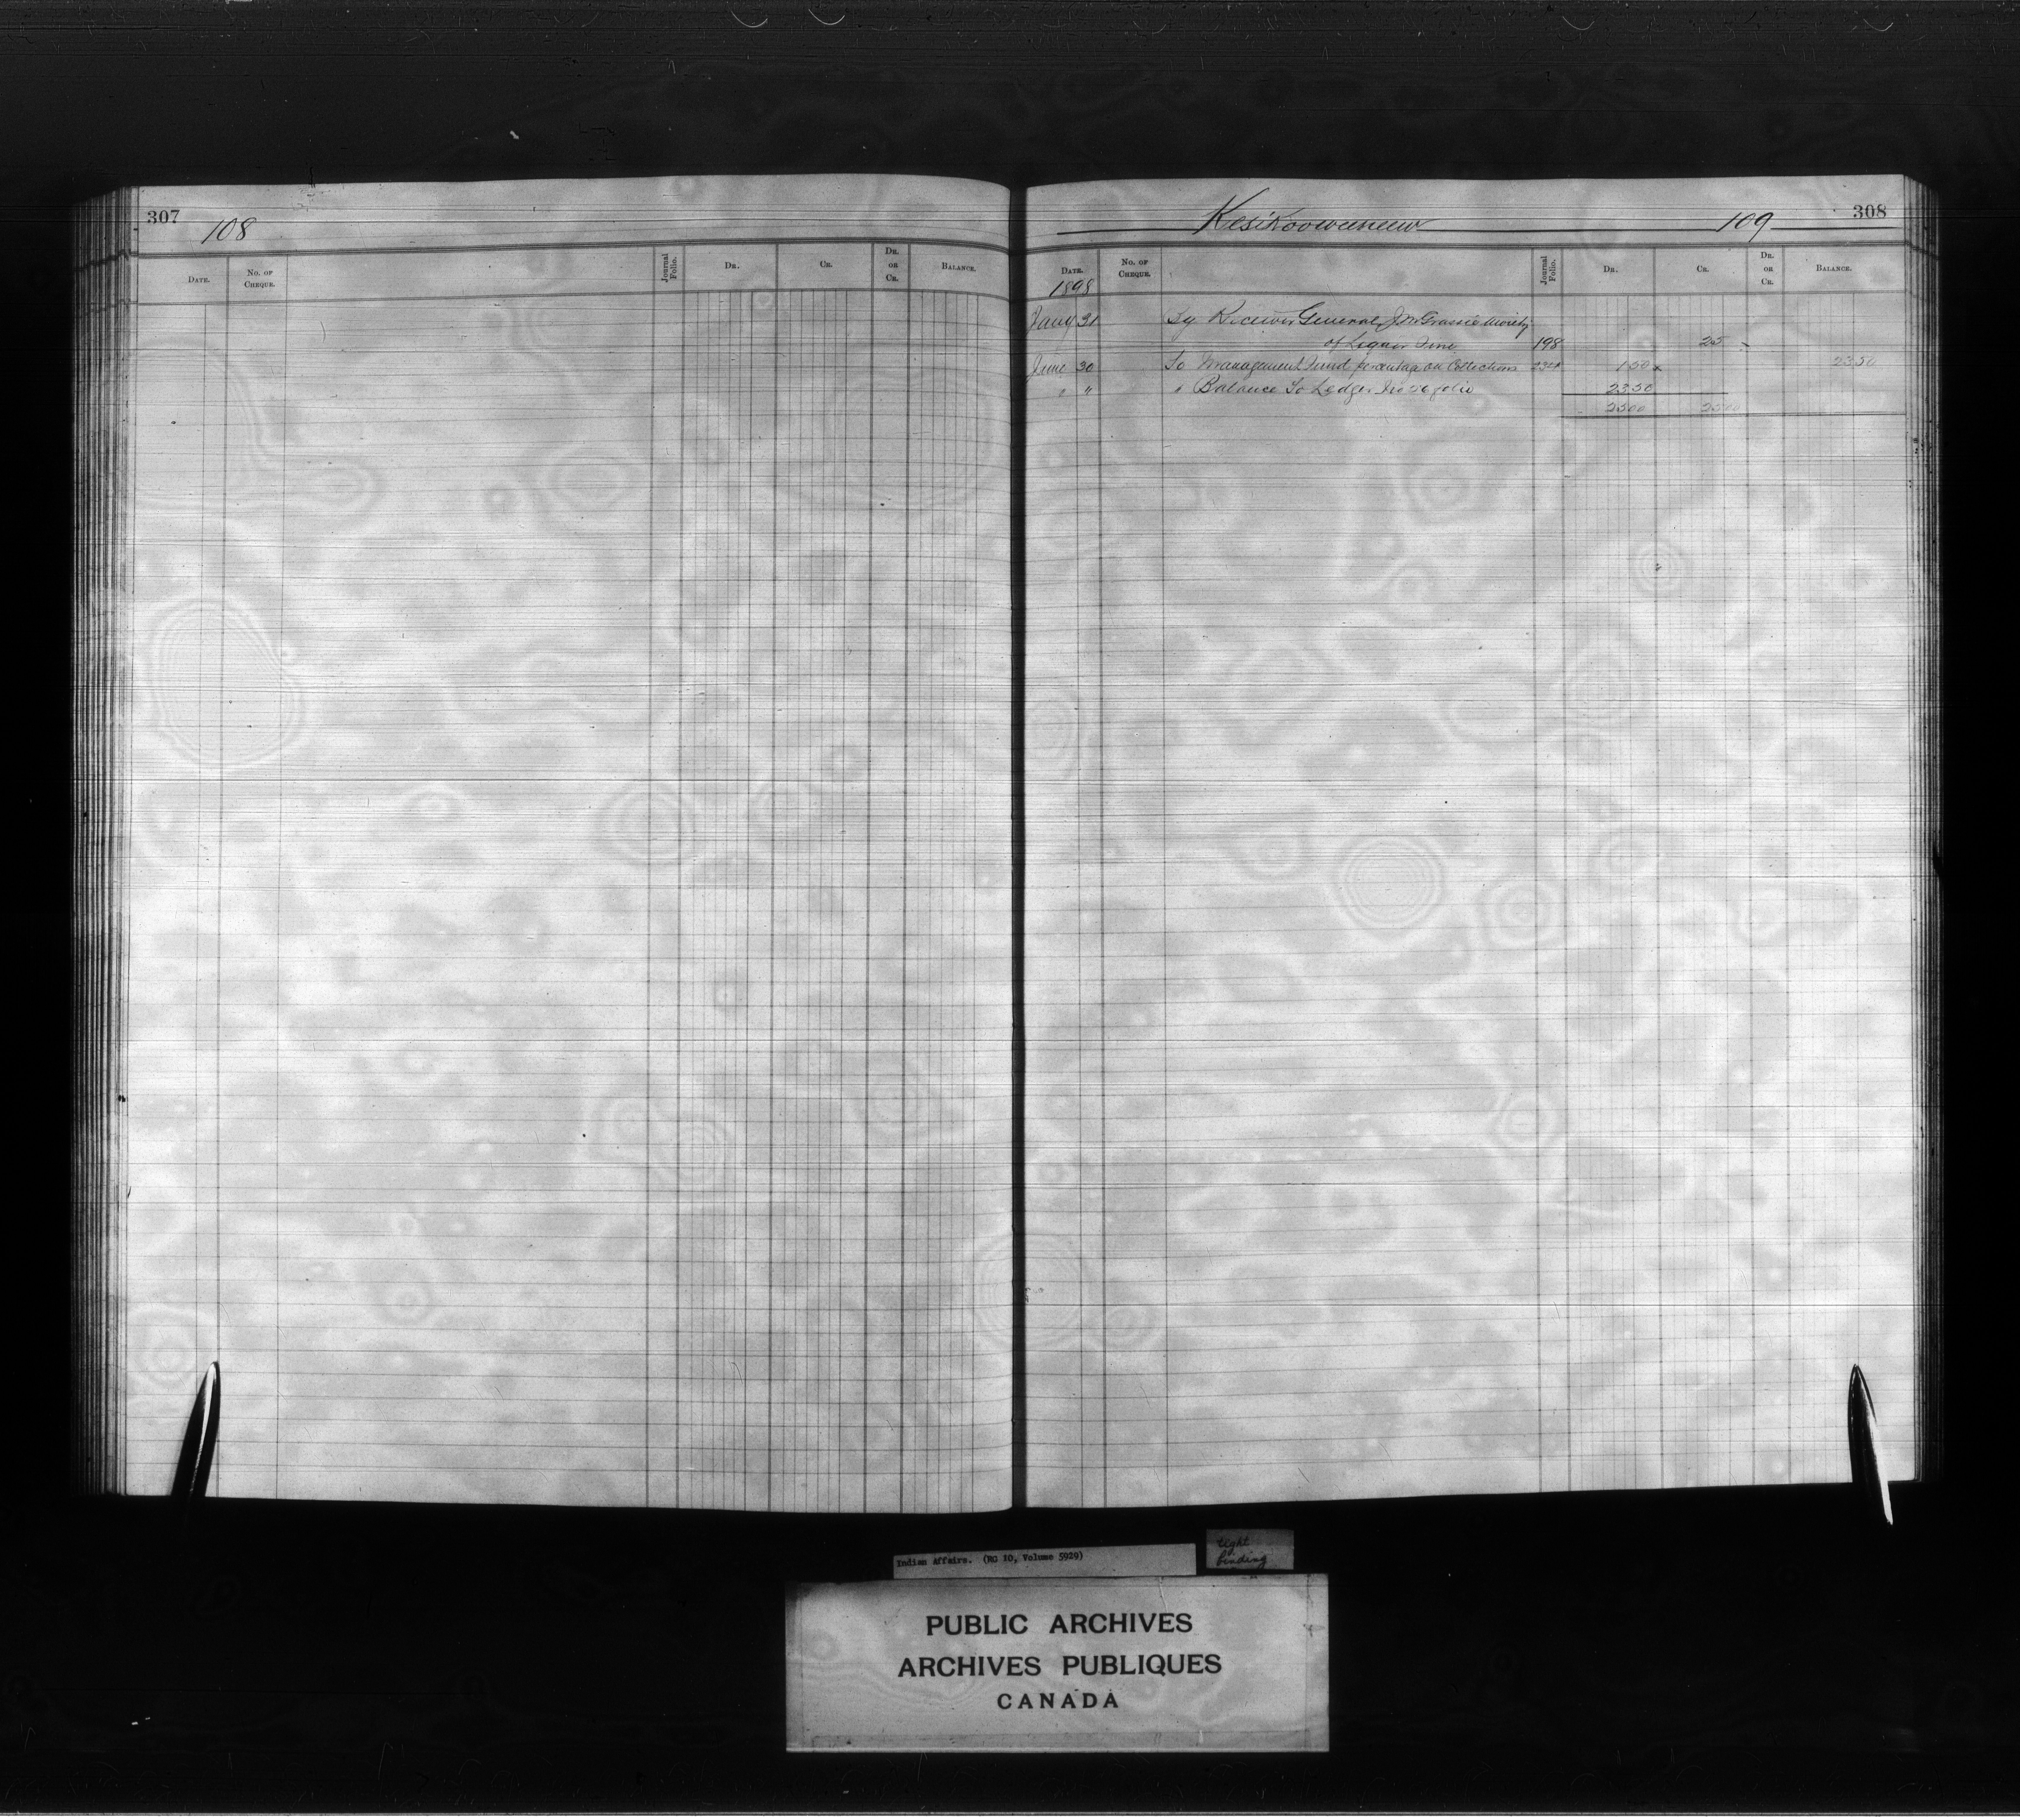 307
108
DATE. No. OF CHEQUE. Journal Folio. DR. CR. DR. OR CR. BALANCE.
Kesikoowenew 109 308
DATE. No. OF CHEQUE. Journal Folio. DR. CR. DR. OR CR. BALANCE.
1898
Jany 31 By Receiver General, J McGrassie Moiety
of Liquor Fine 198 25 -
June 30 To Management Fund percentage on Collections 234 1 50 x 23 50
" " " Balance To Ledger folio 23 50
25 00 25 00
Indian Affairs. (RG 10, Volume 5929)
tight
binding
PUBLIC ARCHIVES
ARCHIVES PUBLIQUES
CANADA